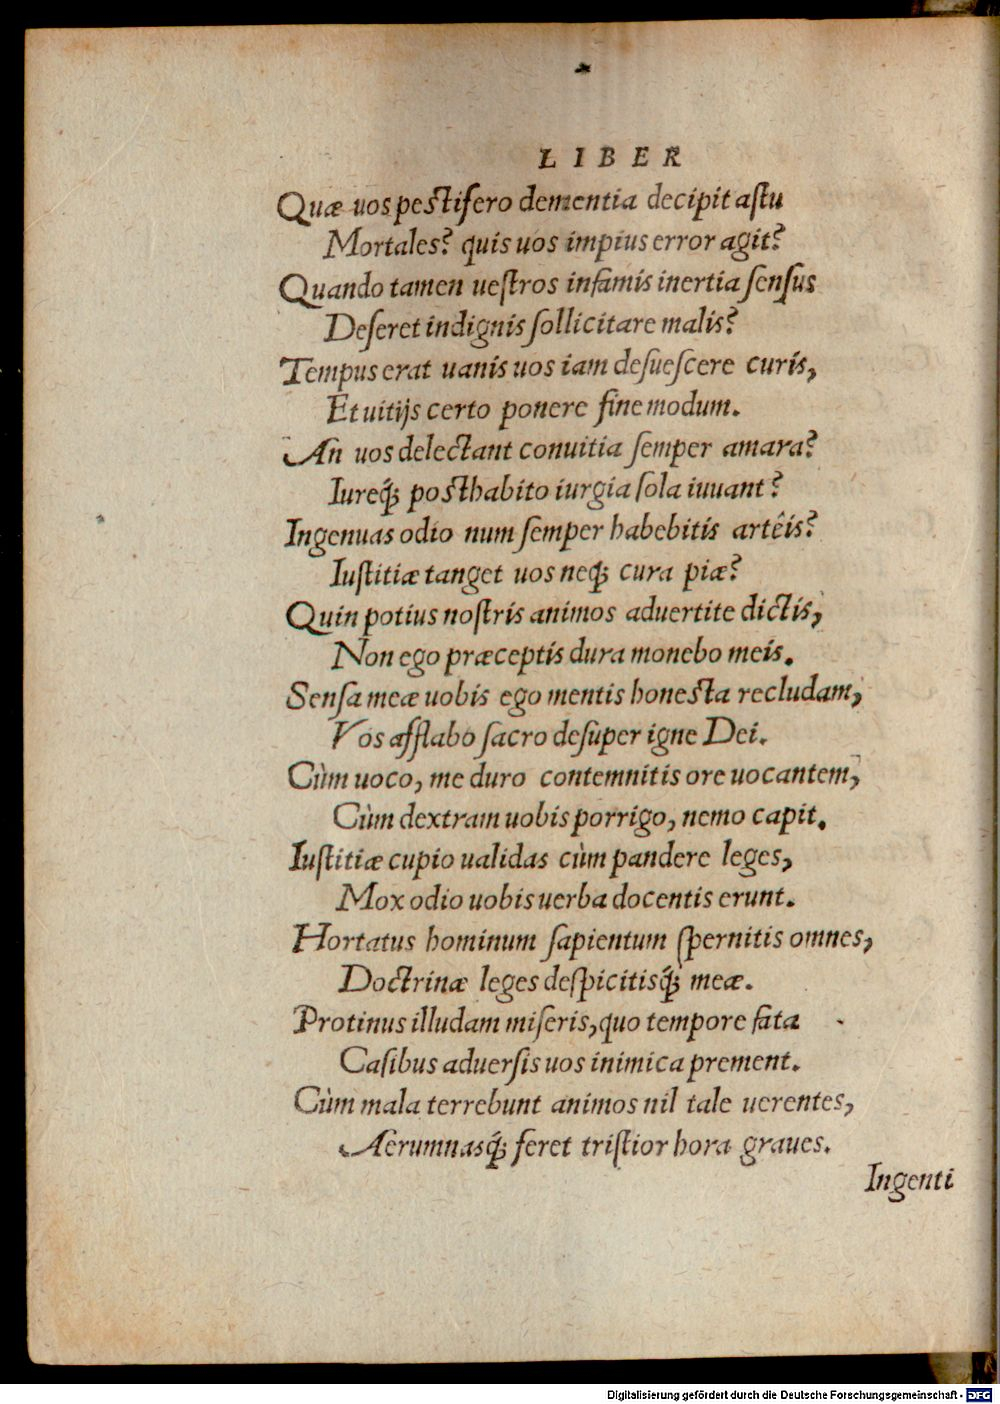 LIBER
Quæ uos pestifero dementia decipit aſtu
Mortales? quis uos impius error agit?
Quando tamen ueſtros infamis inertia ſenſus
Deſeret indignis ſollicitare malis?
Tempus erat uanis uos iam deſueſcere curis,
Et uitijs certo ponere fine modum.
An uos delectant conuitia ſemper amara?
Iureq́; posthabito iurgia ſola iuuant?
Ingenuas odio num ſemper habebitis artêis?
Iuſtitiæ tanget uos neq; cura piæ?
Quin potius noſtris animos aduertite dictis,
Non ego præceptis dura monebo meis.
Senſa meæ uobis ego mentis honesta recludam,
Vos afflabo ſacro deſuper igne Dei.
Cùm uoco, me duro contemnitis ore uocantem,
Cùm dextram uobis porrigo, nemo capit.
Iuſtitiæ cupio ualidas cùm pandere leges,
Mox odio uobis uerba docentis erunt.
Hortatus hominum ſapientum ſpernitis omnes,
Doctrinæ leges deſpicitisq́; meæ.
Protinus illudam miſeris, quo tempore fata
Caſibus aduerſis uos inimica prement.
Cùm mala terrebunt animos nil tale uerentes,
Aerumnasq́; feret triſtior hora graues.
Ingenti
Digitalisierung gefördert durch die Deutsche Forschungsgemeinschaft - DFG